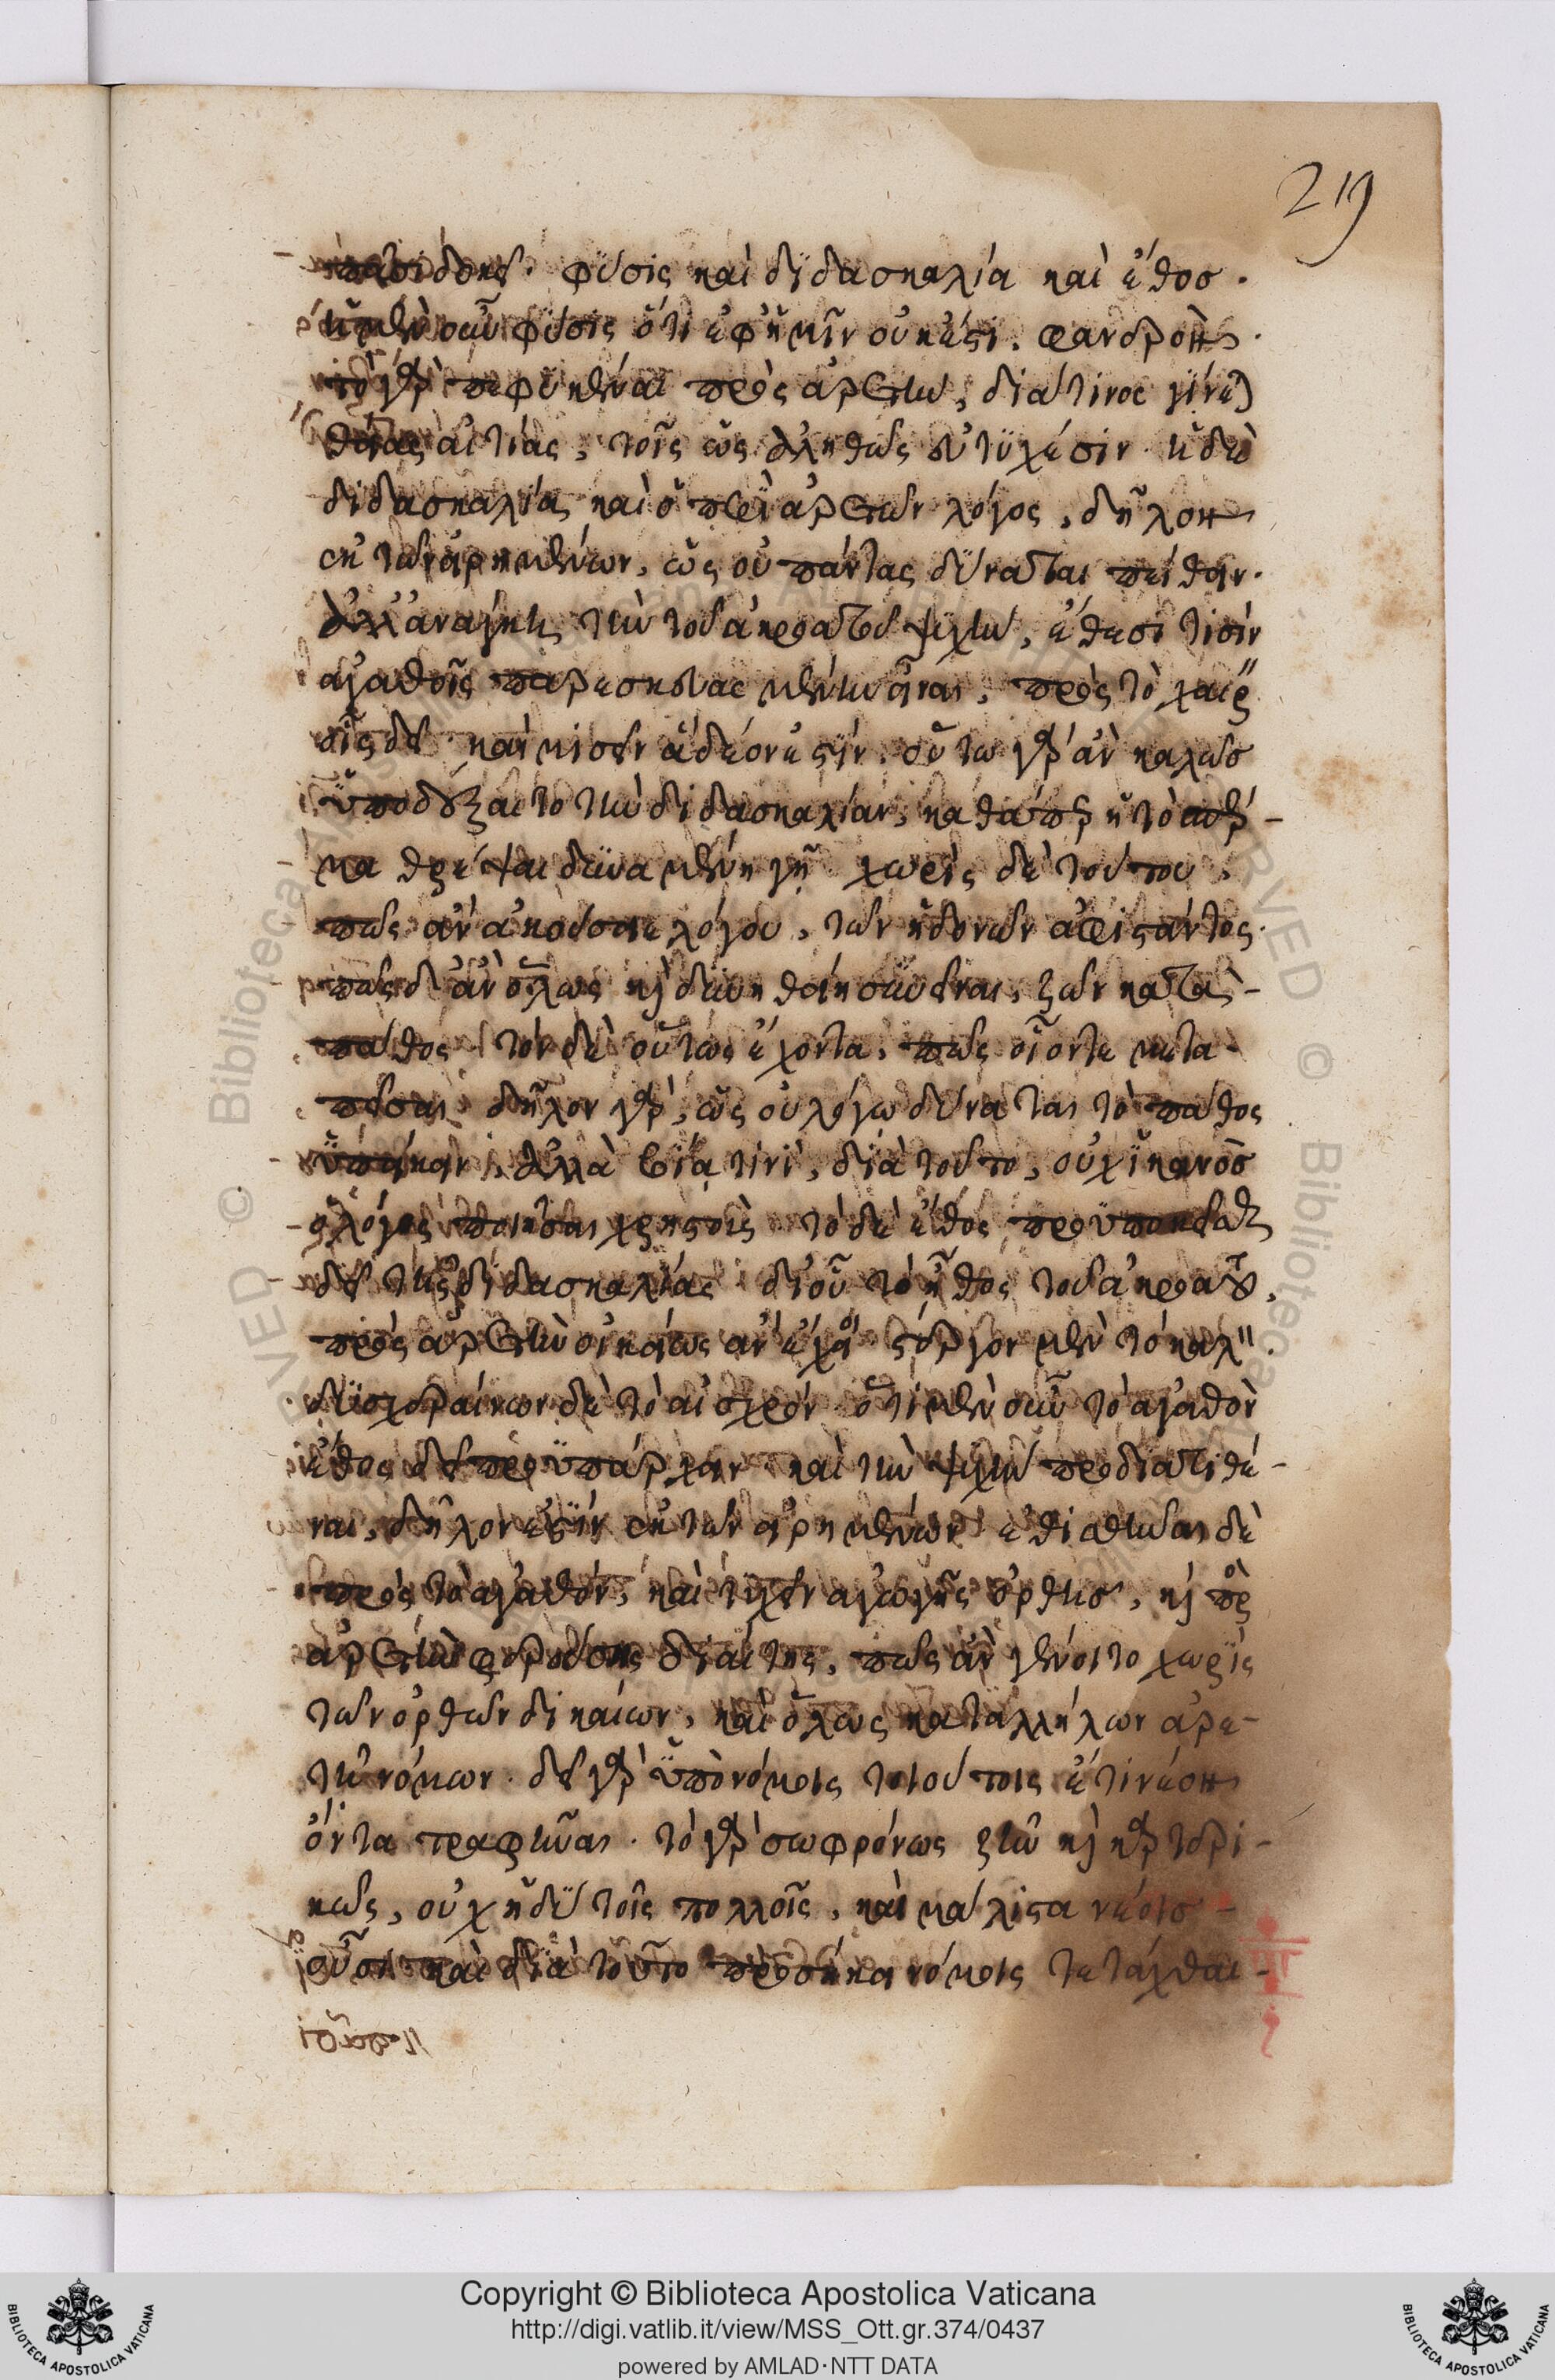 219
παισίδσης. φύσις καὶ διδασκαλία καὶ ἔθος.
ἡ μὲν οὖν φύσις ὅτι ἐφ' ἡμῖν οὐκ ἔστι, φανερόν.
τὸ γὰρ πεφυκέναι πρὸς ἀρετὴν, διά τινος γίνεται
θείας αἰτίας, τοῖς ὡς ἀληθῶς εὐτυχέσιν. ἡ δὲ
διδασκαλία καὶ ὁ περὶ ἀρετῶν λόγος, δῆλον
ἐκ τῶν εἰρημένων, ὡς οὐ πάντας δύναται πείθειν.
ἀλλ' ἀνάγκη τὴν τοῦ ἀκροατοῦ ψυχὴν, ἔθεσί τισιν
ἀγαθοῖς παρεσκευασμένην εἶναι, πρὸς τὸ χαίρ
οἷς δεῖ. καὶ μισεῖν ἃ δέον ἐστίν. οὕτω γὰρ ἂν καλῶς
ὑποδέξαιτο τὴν διδασκαλίαν, καθάπερ ἡ τὸ σπέρ-
μα θρέψαι δυναμένη γῆ χωρὶς δὲ τούτου,
πῶς ἂν ἀκούσειε λόγου, τῶν ἡδονῶν ἀφιστάντος.
πῶς δ' ἂν ὅλως καὶ δυνηθείη συνεῖναι, ζῶν κατὰ
πάθος. τὸν δὲ οὕτως ἔχοντα, πῶς οἷόν τε μετα-
πεῖσαι. δῆλον γὰρ, ὡς οὐ λόγω δύναται τὸ πάθος
ὑπείκειν, ἀλλὰ βίᾳ τινὶ, διὰ τοῦτο, οὐχ ἱκανὸς
ὁ λόγος ποιῆσαι χρηστοὺς τὸ δὲ ἔθος προϋποκεῖσθαι
δεῖ τῆς διδασκαλίας δι' οὗ τὸ ἦθος τοῦ ἀκροατοῦ,
πρὸς ἀρετὴν οἰκείως ἂν ἔχοι στέργον μὲν τὸ καλ
δυσχεραίνων δὲ τὸ αἰσχρόν ὅτι μὲν οὖν τὸ ἀγαθὸν
ἔθος δεῖ προϋπάρχειν καὶ τὴν ψυχὴν προδιατιθέ-
ναι, δῆλον ἐστὶν ἐκ τῶν εἰρημένων ἐθισθῆναι δὲ
πρὸς τὸ ἀγαθόν, καὶ τυχεῖν ἀγωγῆς ὀρθῆς, καὶ πρὸς
ἀρετὴν φερούσης διαίτης, πῶς ἂν γένοιτο χωρὶς
τῶν ὀρθῶν δικαίων, καὶ ὅλως καταλλήλων ἀρε-
τῆ νόμων. δεῖ γὰρ ὑπὸ νόμοις τοιούτοις ἔτι νέον
ὄντα τραφῆναι. τὸ γὰρ σωφρόνως ζῆν καὶ καρτερι-
κῶς, οὐχ ἡδὺ τοῖς πολλοῖς, καὶ μάλιστα νέοις
οὖσι καὶ διὰ τοῦτο προσήκει νόμοις τετάχθαι
Copyright © Biblioteca Apostolica Vaticana
http://digi.vatlib.it/view/MSS_Ott.gr.374/0437
powered by AMLAD·NTT DATA